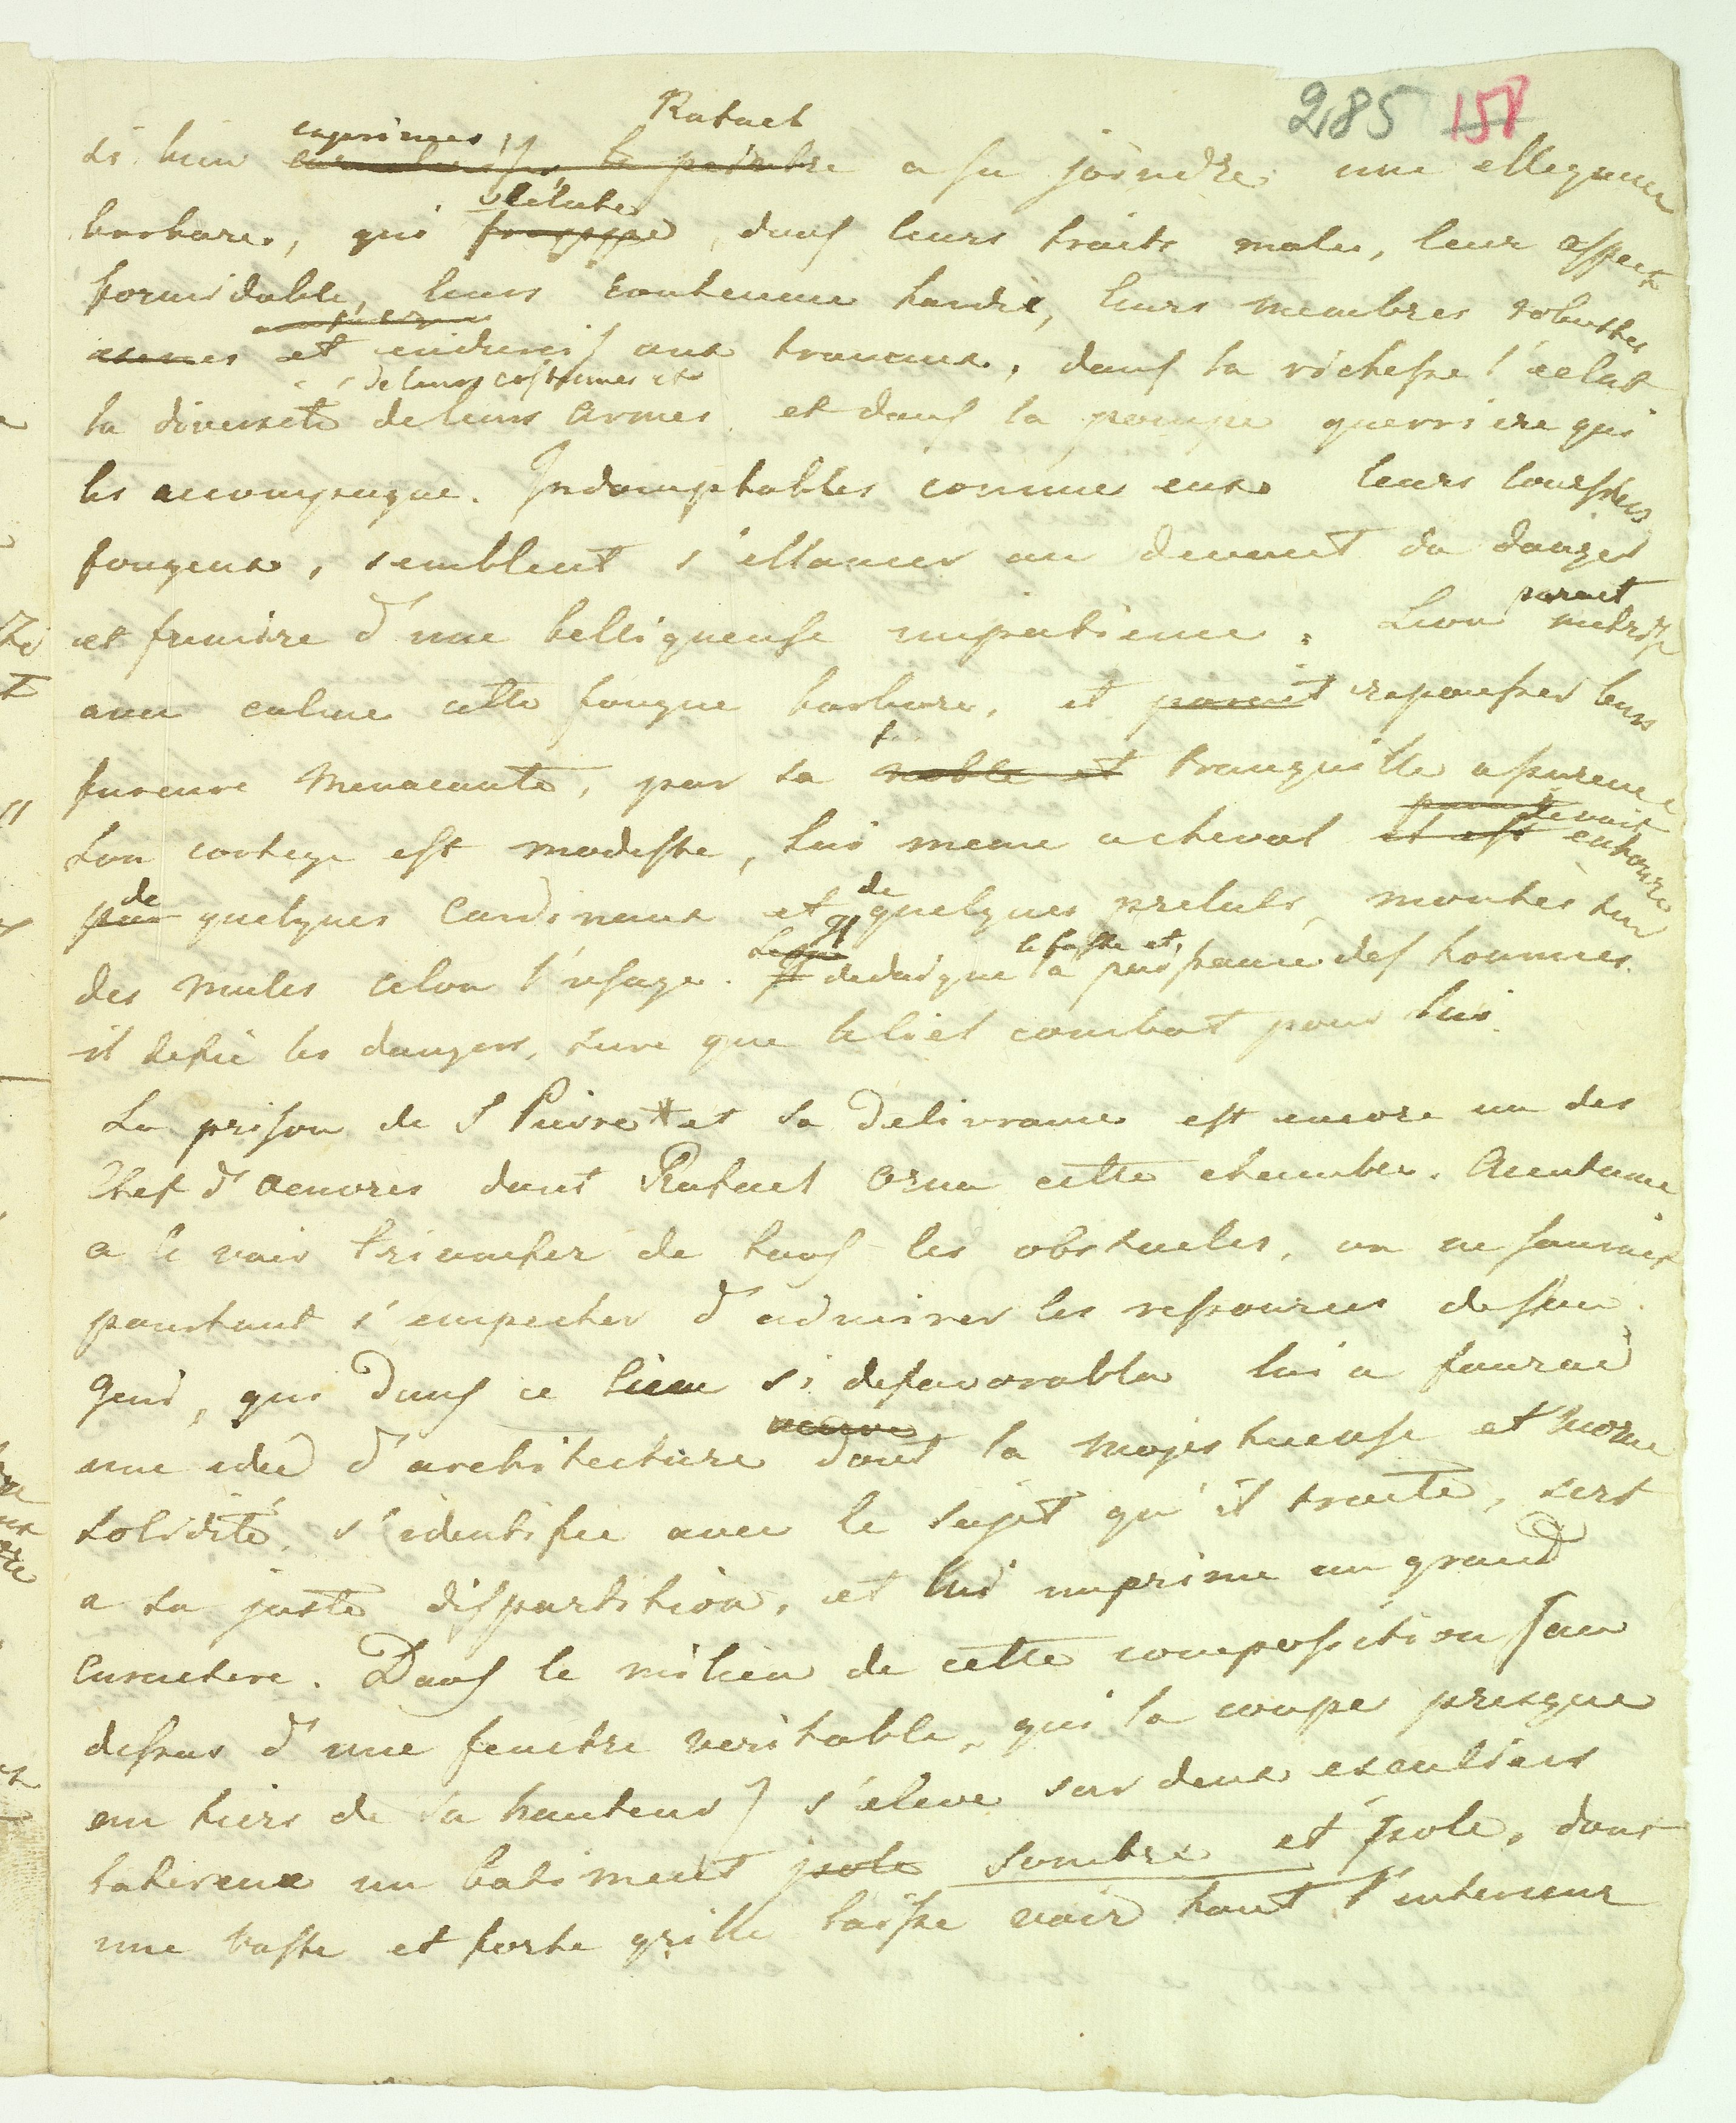 285 158
Rafael
exprimés
si bien a su joindre une ellegance
éclate
barbare, qui frappe, dans leurs traits males, leur aspect
formidable, leurs contenence hardie, leurs membres robustes
et endurcis aux travaux, dans la richesse l'éclat
de leurs costumes et
la diversité de leurs armes et dans la pompe guerriere qui
les accompagne. Indomptables comme eux leurs coursiers
fougeux, semblent s'ellancer au devant du danger
parait
et fremire d'une belliqueuse impatience. Leon metrise
avec calme cette fougue barbare, et parait repousser leurs
fureure menacante, par sa noble et tranquille assurence
devoir
Son cortege est modeste, lui meme a cheval et est entouré
de de
par quelques Cardinaux et quelques prelats, montés sur
Leon Il le faste et,
des mules celon l'usage. Il dedaigne la puissance des hommes.
il defie les dangers, sure que le ciel combat pour lui.
La prison de S Pierre et sa delivrance est encore un des
Chef d'oeuvres dont Rafael orna cette chambre. Accutumé
a le voir triomfer de tous les obstacles, on ne saurait
pourtant s'empecher d'admirer les ressources de son
geni, qui dans ce lieu si defavorable lui a fourni
une idée d'architecture dont la majestueuse et morne
solidité, s'identifie avec le sujet qu'il traite, sert
a sa juste dispartition, et lui imprime un grand
caractere. Dans le milieu de cette composition (au
dessus d'une fenetre veritable, qui la coupe presque
au tiers de sa hauteur) s'éleve sur deux escaliers
latereaux un batiment isolé sombre et isolé, dont
une vaste et forte grille laisse voir tout l'interieur